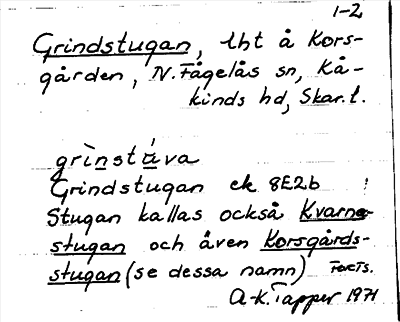 1-2
Grindstugan, lht å Kors-
gården, N. Fågelås sn, Kå-
kinds hd, Skar. l.
grinstúva
Grindstugan ek 8E2b
Stugan kallas också Kvarn-
stugan och även Korsgårds-
stugan (se dessa namn) Forts.
A-K. Tapper 1971